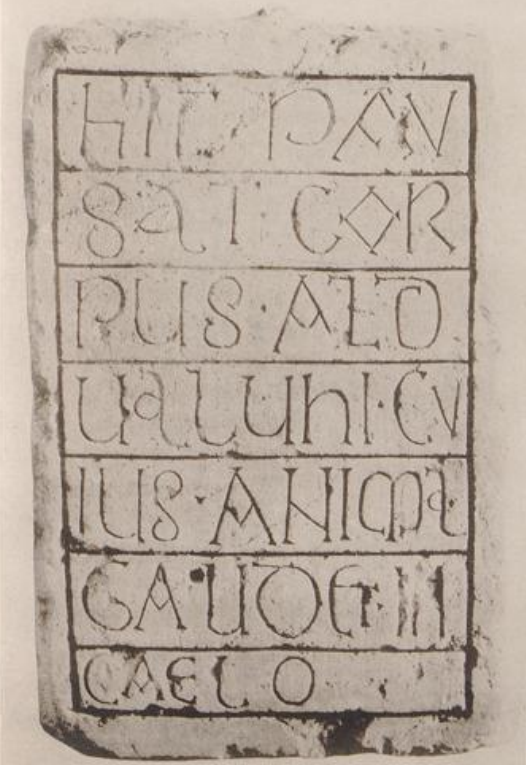 HIC PAV
SAT COR
PUS · ALD
UALUHI · CV
IUS · ANIMA
GAUDET IN
CAELO